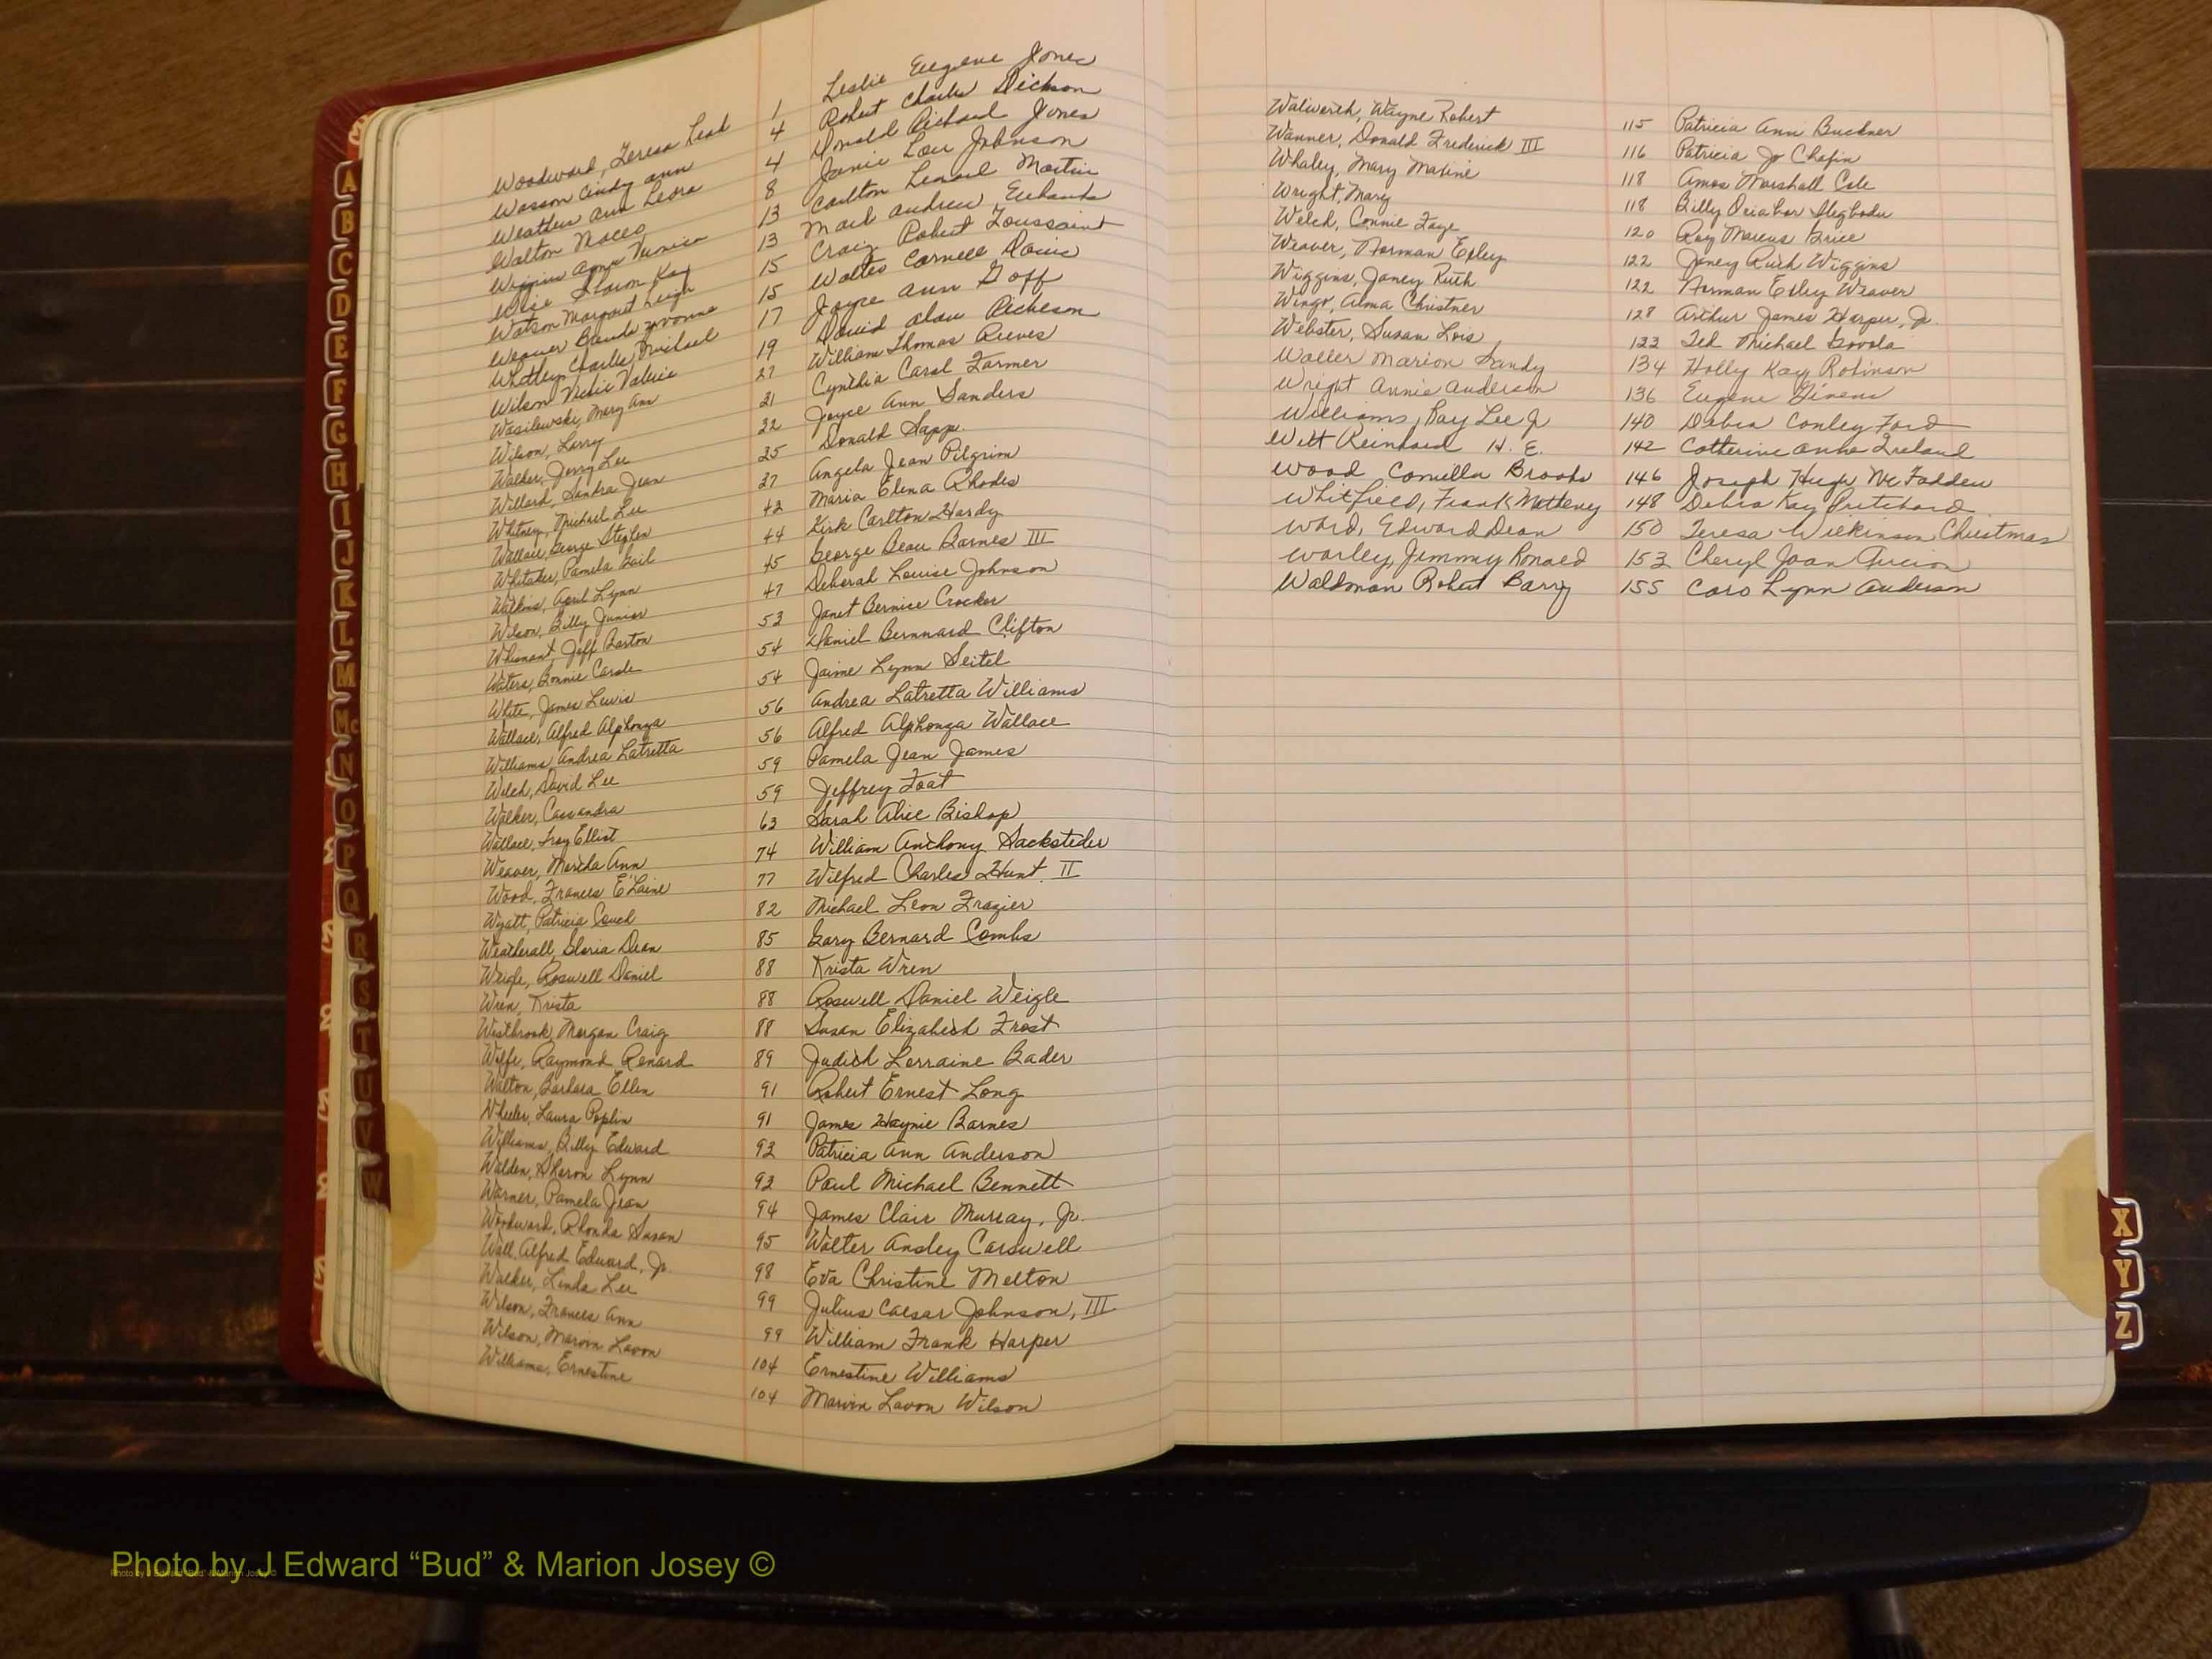 Woodward, Teresa Leah 1 Leslie Eugene Jones
Wasson Cindy Ann 4 Robert Charles Dickson
Weathers Ann Leora 4 Donald Richard Jones
Walton Maceo 8 Janie Lou Johnson
Wiggins Anna 13 Carlton Lenard Martin
Wise Sharon Kay 13 Mark Andrew Eubanks
Watson Margaret Leigh 15 Craig Robert Toussaint
Weaver Brenda Yvonne 15 Walter Cornell Davis
Whatley Charles Michael 17 Joyce Ann Goff
Wilson Vickie Valerie 19 David Alan Richeson
Wasilewski, Mary Ann 27 William Thomas Reeves
Wilson, Larry 31 Cynthia Carol Farmer
Walker, Jerry Lee 32 Joyce Ann Sanders
Willard, Sandra Jean 35 Donald Sapp.
Whitney, Michael Lee 37 Angela Jean Pilgrim
Wallace, George Stephen 42 Maria Elena Rhodes
Whitaker, Pamela Gail 44 Kirk Carlton Hardy
Watkins, April Lynn 45 George Beau Barnes III
Wilson, Billy Junior 47 Deborah Louise Johnson
Whisnant, Jeff Barton 53 Janet Bernice Crocker
Waters, Bonnie Carole 54 Daniel Bernnard Clifton
White, James Lewis 54 Jaime Lynn Seitel
Wallace, Alfred Alphonza 56 Andrea Latretta Williams
Williams, Andrea Latretta 56 Alfred Alphonza Wallace
Welch, David Lee 59 Pamela Jean James
Walker, Cassandra 59 Jeffrey Foat
Wallace, Troy Elliot 63 Sarah Alice Bishop
Weaver, Martha Ann 74 William Anthony Sacksteder
Wood, Frances E'Laine 77 Wilfred Charles Hunt, II
Wyatt, Patricia Couch 82 Michael Leon Frazier
Weatherall, Gloria Dean 85 Gary Bernard Combs
Weigle, Roswell Daniel 88 Krista Wren
Wren, Krista 88 Roswell Daniel Weigle
Westbrook, Morgan Craig 88 Susan Elizabeth Frost
Wolfe, Raymond Renard 89 Judith Lorraine Bader
Walton, Barbara Ellen 91 Robert Ernest Long
Wheeler, Laura Poplin 91 James Haynie Barnes
Williams, Billy Edward 92 Patricia Ann Anderson
Walden, Sharon Lynn 93 Paul Michael Bennett
Warner, Pamela Jean 94 James Clair Murray, Jr.
Woodward, Rhonda Susan 95 Walter Ansley Carswell
Wall, Alfred Edward, Jr. 98 Eva Christine Melton
Walker, Linda Lee 99 Julius Caesar Johnson, III
Wilson, Frances Ann 99 William Frank Harper
Wilson, Marvin Lavon 104 Ernestine Williams
Williams, Ernestine 104 Marvin Lavon Wilson
Walworth, Wayne Robert 115 Patricia Ann Buckner
Wanner, Donald Frederick III 116 Patricia Jo Chafin
Whaley, Mary Maxine 118 Amos Marshall Cole
Wright, Mary 118 Billy
Welch, Connie Faye 120 Roy Marcus Brice
Weaver, Norman Exley 122 Janey Ruth Wiggins
Wiggins, Janey Ruth 122 Norman Exley Weaver
Wingo, Alma Christner 128 Arthur James Harper, Jr.
Webster, Susan Lois 133 Ted Michael
Waller Marion Sandy 134 Holly Kay Robinson
Wright Annie Anderson 136 Eugene Givens
Williams, Ray Lee Jr 140 Debra Conley Ford
Witt Reinhard H. E. 142 Catherine Anne Ireland
Wood Camilla Brooks 146 Joseph Hugh McFadden
Whitfield, Frank Matheny 148 Debra Kay Pritchard
Ward, Edward Dean 150 Teresa Wilkinson Christmas
Worley, Jimmy Ronald 153 Cheryl Joan
Waldman Robert Barry 155 Caro Lynn Anderson
A
B
C
D
E
F
G
H
I
J
K
L
M
Mc
N
O
P
Q
R
S
T
U
V
W
X
Y
Z
Photo by J Edward “Bud” & Marion Josey ©
Photo by J Edward “Bud” & Marion Josey ©